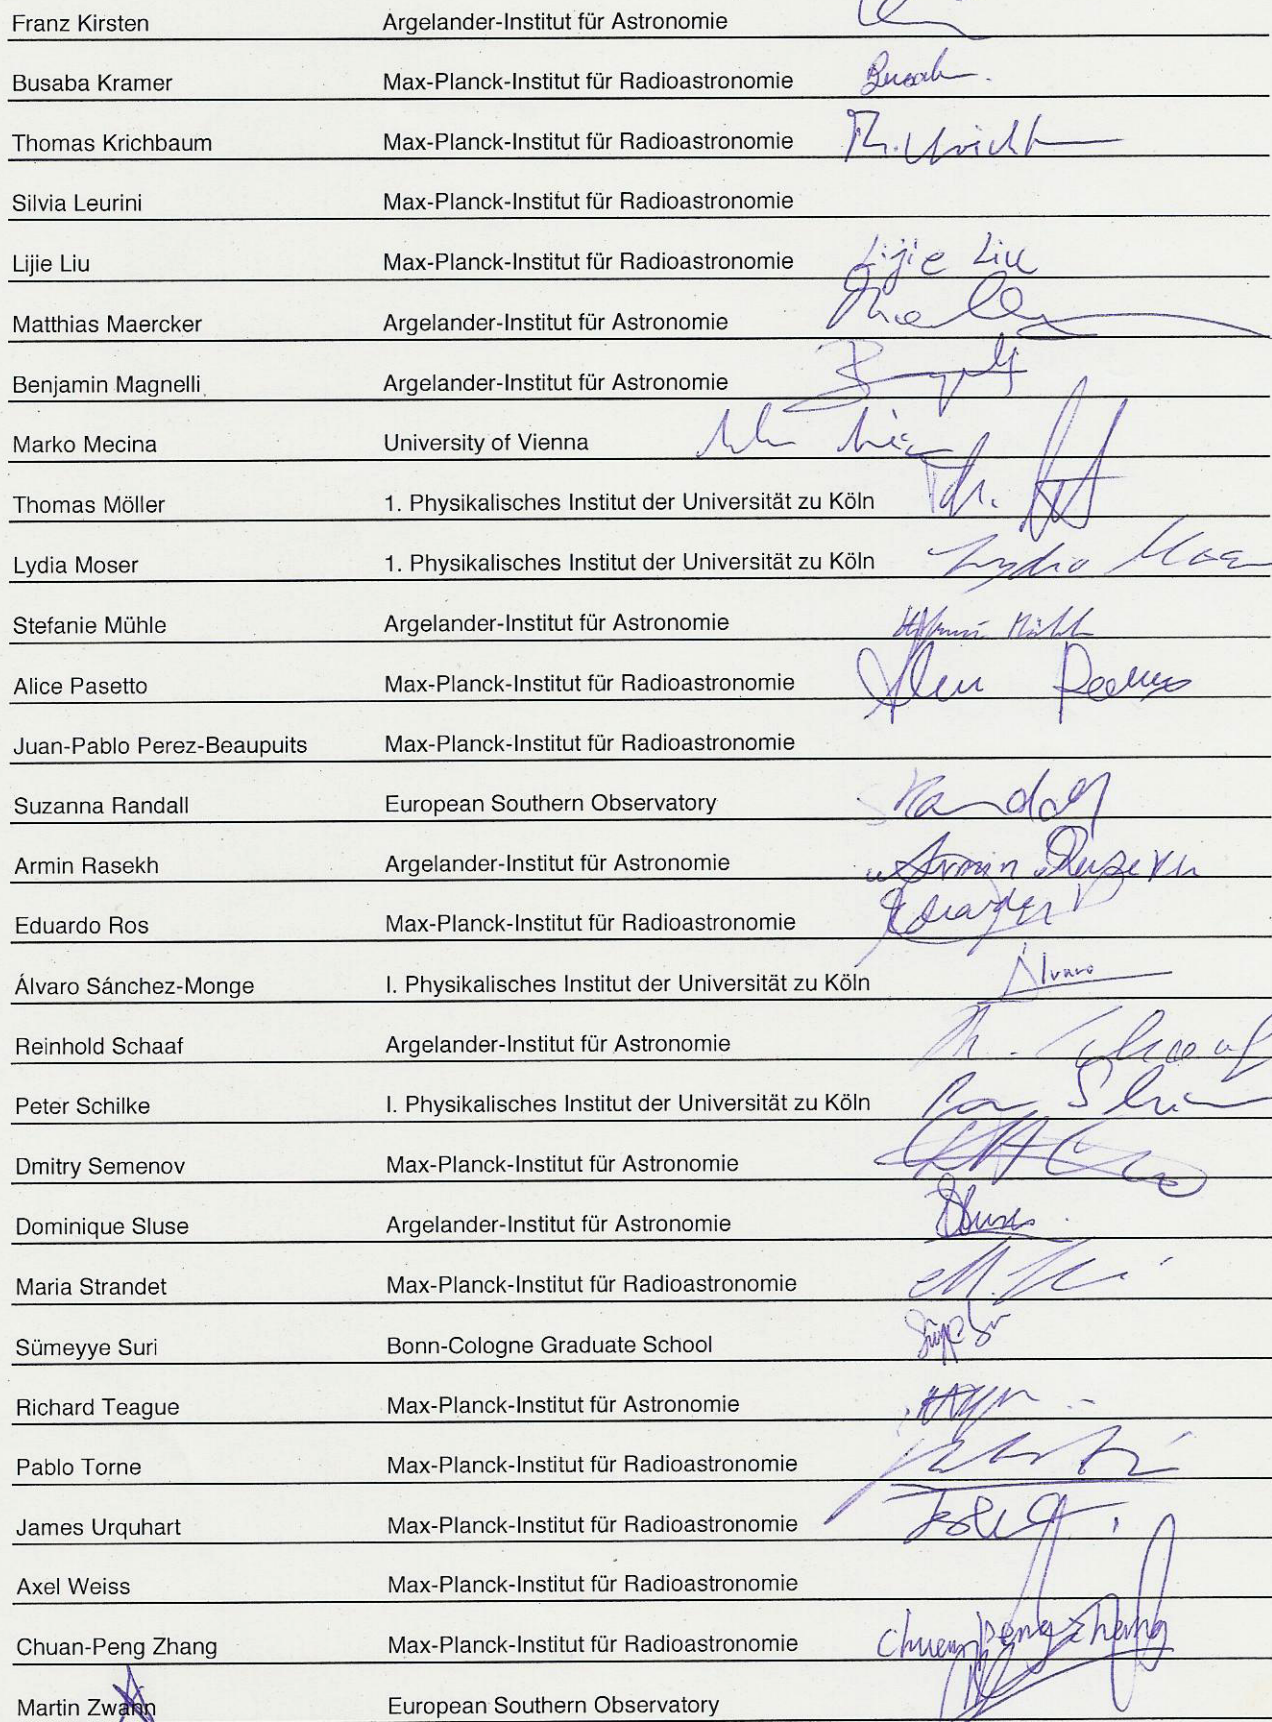 Franz Kirsten Argelander-Institut für Astronomie
Busaba Kramer Max-Planck-Institut für Radioastronomie
Thomas Krichbaum Max-Planck-Institut für Radioastronomie
Silvia Leurini Max-Planck-Institut für Radioastronomie
Lijie Liu Max-Planck-Institut für Radioastronomie Lijie Liu
Matthias Maercker Argelander-Institut für Astronomie
Benjamin Magnelli Argelander-Institut für Astronomie
Marko Mecina University of Vienna
Thomas Möller 1. Physikalisches Institut der Universität zu Köln
Lydia Moser 1. Physikalisches Institut der Universität zu Köln Lydia
Stefanie Mühle Argelander-Institut für Astronomie
Alice Pasetto Max-Planck-Institut für Radioastronomie
Juan-Pablo Perez-Beaupuits Max-Planck-Institut für Radioastronomie
Suzanna Randall European Southern Observatory
Armin Rasekh Argelander-Institut für Astronomie Armin
Eduardo Ros Max-Planck-Institut für Radioastronomie
Álvaro Sánchez-Monge I. Physikalisches Institut der Universität zu Köln Álvaro
Reinhold Schaaf Argelander-Institut für Astronomie
Peter Schilke I. Physikalisches Institut der Universität zu Köln
Dmitry Semenov Max-Planck-Institut für Astronomie
Dominique Sluse Argelander-Institut für Astronomie
Maria Strandet Max-Planck-Institut für Radioastronomie
Sümeyye Suri Bonn-Cologne Graduate School
Richard Teague Max-Planck-Institut für Astronomie
Pablo Torne Max-Planck-Institut für Radioastronomie
James Urquhart Max-Planck-Institut für Radioastronomie
Axel Weiss Max-Planck-Institut für Radioastronomie
Chuan-Peng Zhang Max-Planck-Institut für Radioastronomie Chuan-peng Zhang
Martin Zwann European Southern Observatory